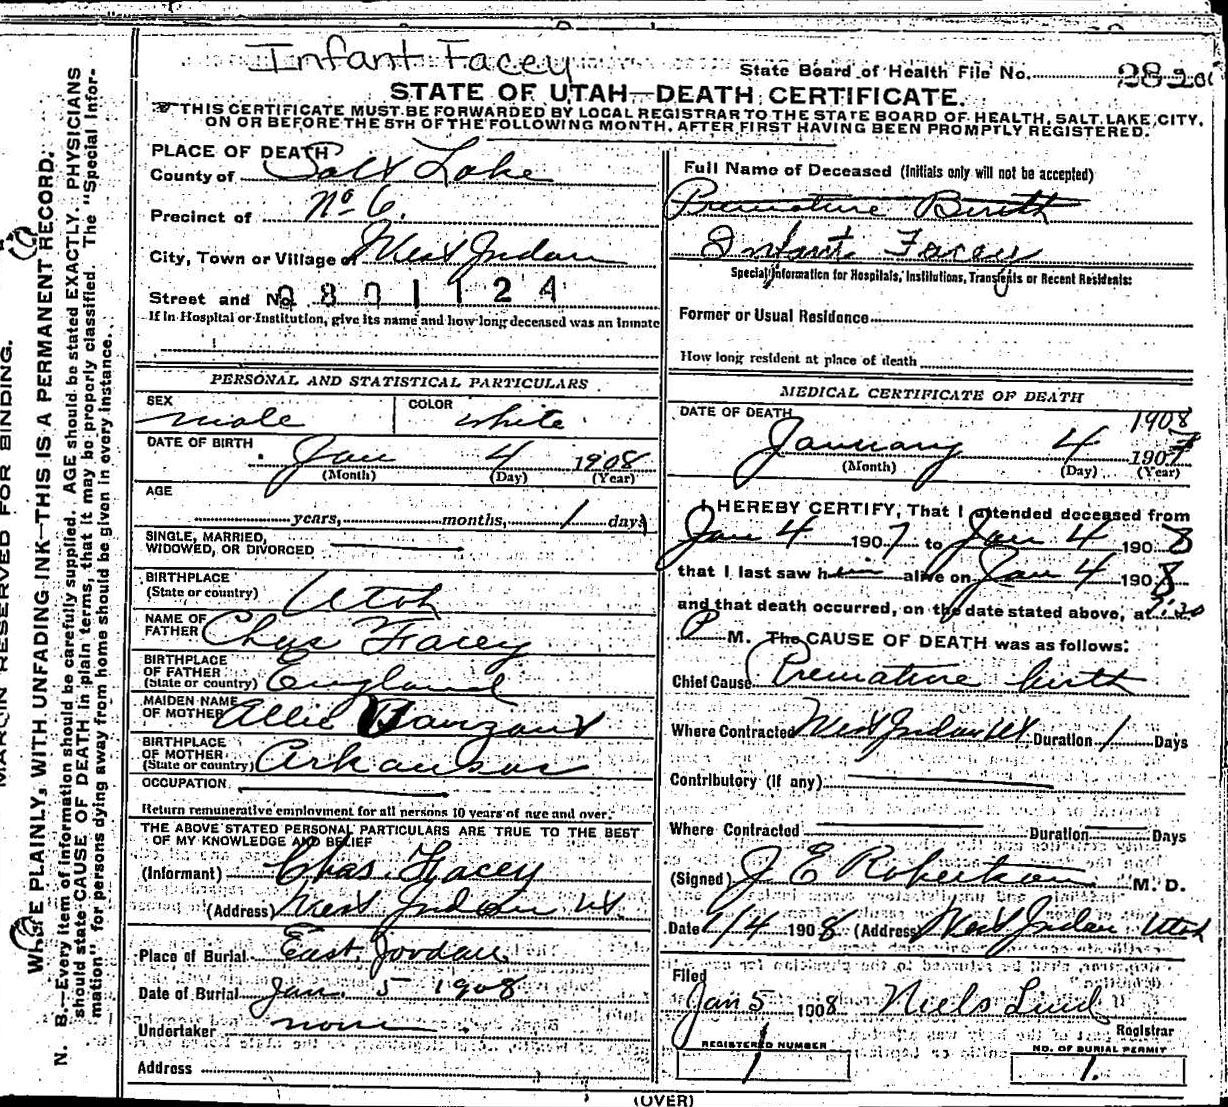 Infant Facey
State Board of Health File No.
STATE OF UTAH—DEATH CERTIFICATE.
THIS CERTIFICATE MUST BE FORWARDED BY LOCAL REGISTRAR TO THE STATE BOARD OF HEALTH, SALT LAKE CITY,
ON OR BEFORE THE 5TH OF THE FOLLOWING MONTH, AFTER FIRST HAVING BEEN PROMPTLY REGISTERED.
MARGIN RESERVED FOR BINDING.
WRITE PLAINLY, WITH UNFADING INK—THIS IS A PERMANENT RECORD.
N. B.—Every item of information should be carefully supplied. AGE should be stated EXACTLY. PHYSICIANS
should state CAUSE OF DEATH in plain terms, that it may be properly classified. The "Special Infor-
mation" for persons dying away from home should be given in every instance.
PLACE OF DEATH
County of Salt Lake
Precinct of No 6.
City, Town or Village of West Jordan
Street and No. 0801124
If in Hospital or Institution, give its name and how long deceased was an inmate
PERSONAL AND STATISTICAL PARTICULARS
SEX male COLOR white
DATE OF BIRTH Jan 4 1908
(Month) (Day) (Year)
AGE
years, months, 1 days
SINGLE, MARRIED,
WIDOWED, OR DIVORCED
BIRTHPLACE
(State or country) Utah
NAME OF
FATHER Chas Facey
BIRTHPLACE
OF FATHER
(State or country) England
MAIDEN NAME
OF MOTHER Allie Vanzant
BIRTHPLACE
OF MOTHER
(State or country) Arkansas
OCCUPATION
Return remunerative employment for all persons 10 years of age and over.
THE ABOVE STATED PERSONAL PARTICULARS ARE TRUE TO THE BEST
OF MY KNOWLEDGE AND BELIEF
(Informant) Chas. Facey
(Address) West Jordan Ut.
Place of Burial East Jordan
Date of Burial Jan. 5 1908
Undertaker none
Address
Full Name of Deceased (Initials only will not be accepted)
Premature Birth
Infant Facey
Special Information for Hospitals, Institutions, Transients or Recent Residents:
Former or Usual Residence
How long resident at place of death
MEDICAL CERTIFICATE OF DEATH
DATE OF DEATH 1908
January 4 1907
(Month) (Day) (Year)
I HEREBY CERTIFY, That I attended deceased from
Jan 4 1907 to Jan 4 1908
that I last saw him alive on Jan 4 1908
and that death occurred, on the date stated above, at
P M. The CAUSE OF DEATH was as follows:
Chief Cause Premature birth
Where Contracted West Jordan Ut Duration 1 Days
Contributory (if any)
Where Contracted Duration Days
(Signed) J E Robertson M. D.
Date 1/4 1908 (Address) West Jordan Utah
Filed
Jan 5 1908 Niels Lind
Registrar
REGISTERED NUMBER
1
NO. OF BURIAL PERMIT
1.
(OVER)